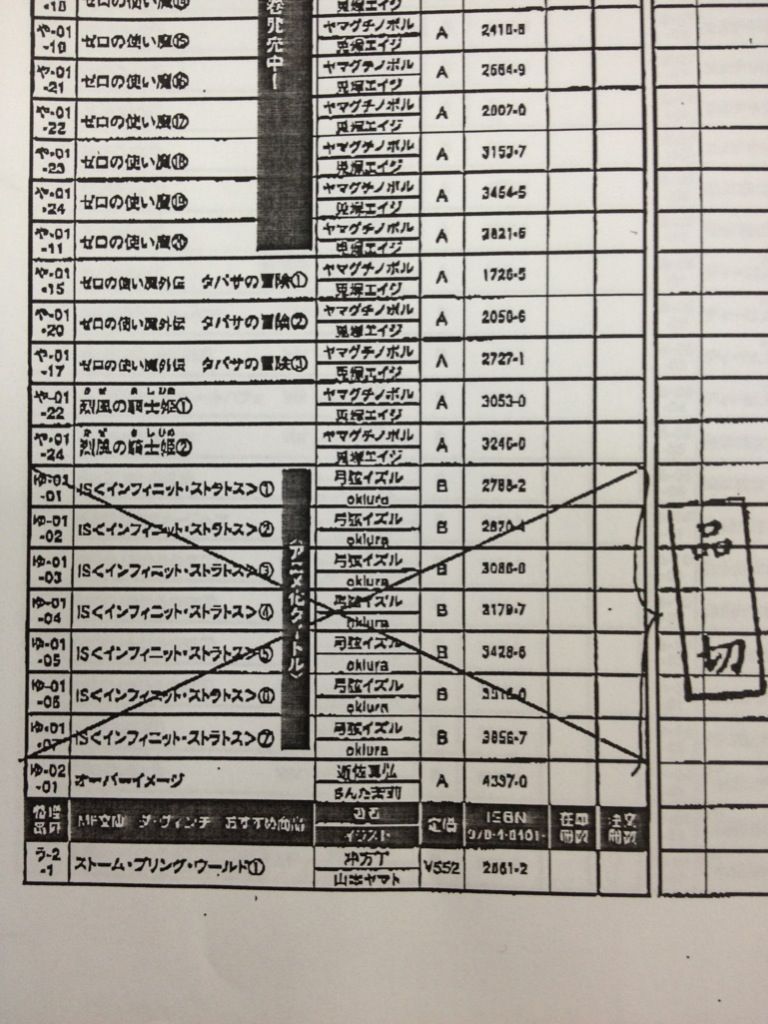 ヤマグチノボル
や-01-19 ゼロの使い魔⑮ 兎塚エイジ A 2416-8
や-01-21 ゼロの使い魔⑯ ヤマグチノボル 兎塚エイジ A 2564-9
や-01-22 ゼロの使い魔⑰ ヤマグチノボル 兎塚エイジ A
や-01-23 ゼロの使い魔⑱ ヤマグチノボル 兎塚エイジ A 3153-7
や-01-24 ゼロの使い魔⑲ ヤマグチノボル 兎塚エイジ A 3454-5
や-01-11 ゼロの使い魔⑳ ヤマグチノボル 兎塚エイジ A
や-01-15 ゼロの使い魔外伝 タバサの冒険① ヤマグチノボル 兎塚エイジ A 1726-5
や-01-20 ゼロの使い魔外伝 タバサの冒険② ヤマグチノボル 兎塚エイジ A
や-01-17 ゼロの使い魔外伝 タバサの冒険③ ヤマグチノボル 兎塚エイジ A 2727-1
や-01-22 烈風の騎士姫① ヤマグチノボル 兎塚エイジ A 3053-0
や-01-24 烈風の騎士姫② ヤマグチノボル 兎塚エイジ A
ゆ-01-01 IS<インフィニット・ストラトス>① 弓弦イズル okiura B 2788-2
ゆ-01-02 IS<インフィニット・ストラトス>② 弓弦イズル okiura B
ゆ-01-03 IS<インフィニット・ストラトス>③ 弓弦イズル okiura B
ゆ-01-04 IS<インフィニット・ストラトス>④ 弓弦イズル okiura B 3179-7
ゆ-01-05 IS<インフィニット・ストラトス>⑤ 弓弦イズル okiura B 3428-6
ゆ-01-06 IS<インフィニット・ストラトス>⑥ 弓弦イズル okiura B
ゆ-01-07 IS<インフィニット・ストラトス>⑦ 弓弦イズル okiura B 3856-7
〈アニメ化タイトル〉
品切
ゆ-02-01 オーバーイメージ 遊佐真弘 さんた茉莉 A 4337-0
MF文庫 ダ・ヴィンチ おすすめ商品 イラスト 定価 ISBN 978-4-8401- 在庫冊数 注文冊数
う-2-1 ストーム・ブリング・ワールド① 冲方丁 山本ヤマト ¥552 2861-2